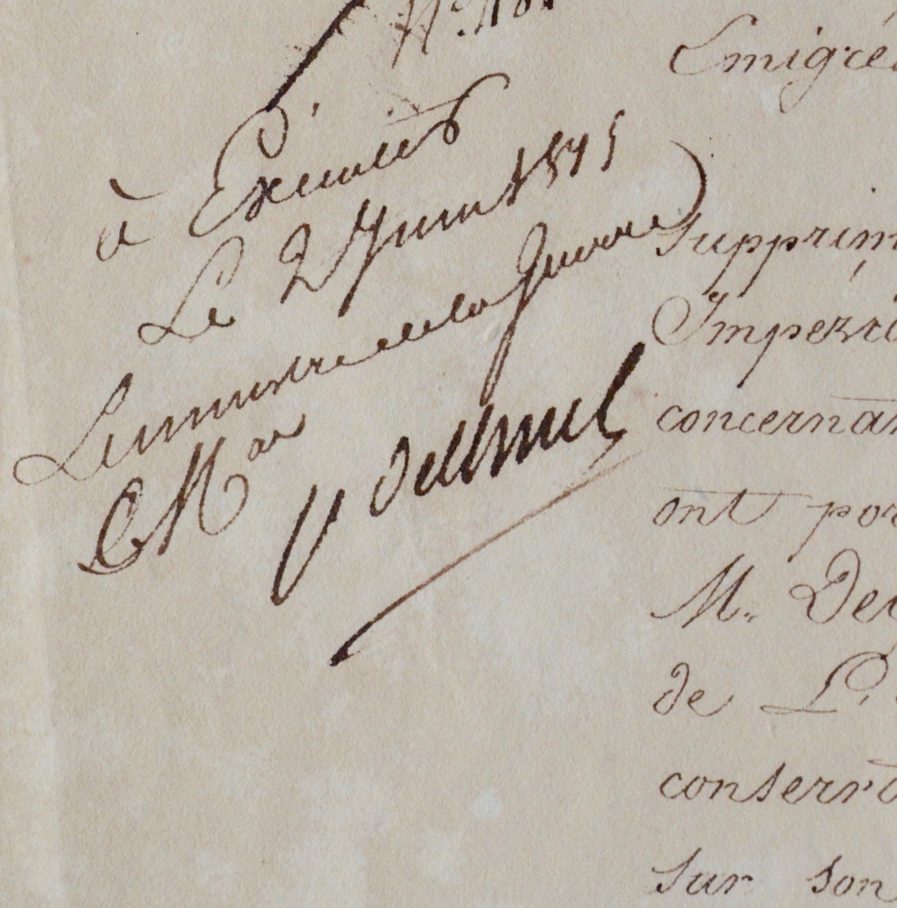 à Exécuter
Le 2 Juin 1815
Le ministre de la Guerre
Mal
Emigré
Supprim
Imperia
concernan
ont por
M. De
de L'
conserva
Sur son